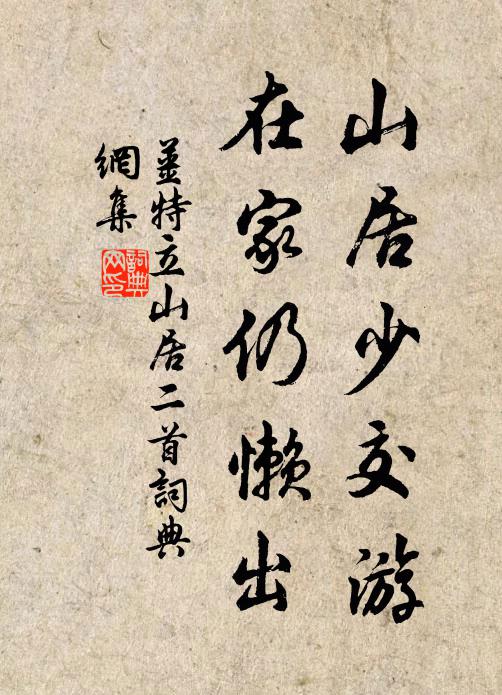 山居少交游
在家仍懒出
姜特立山居二首詞典
網集
詞典网印